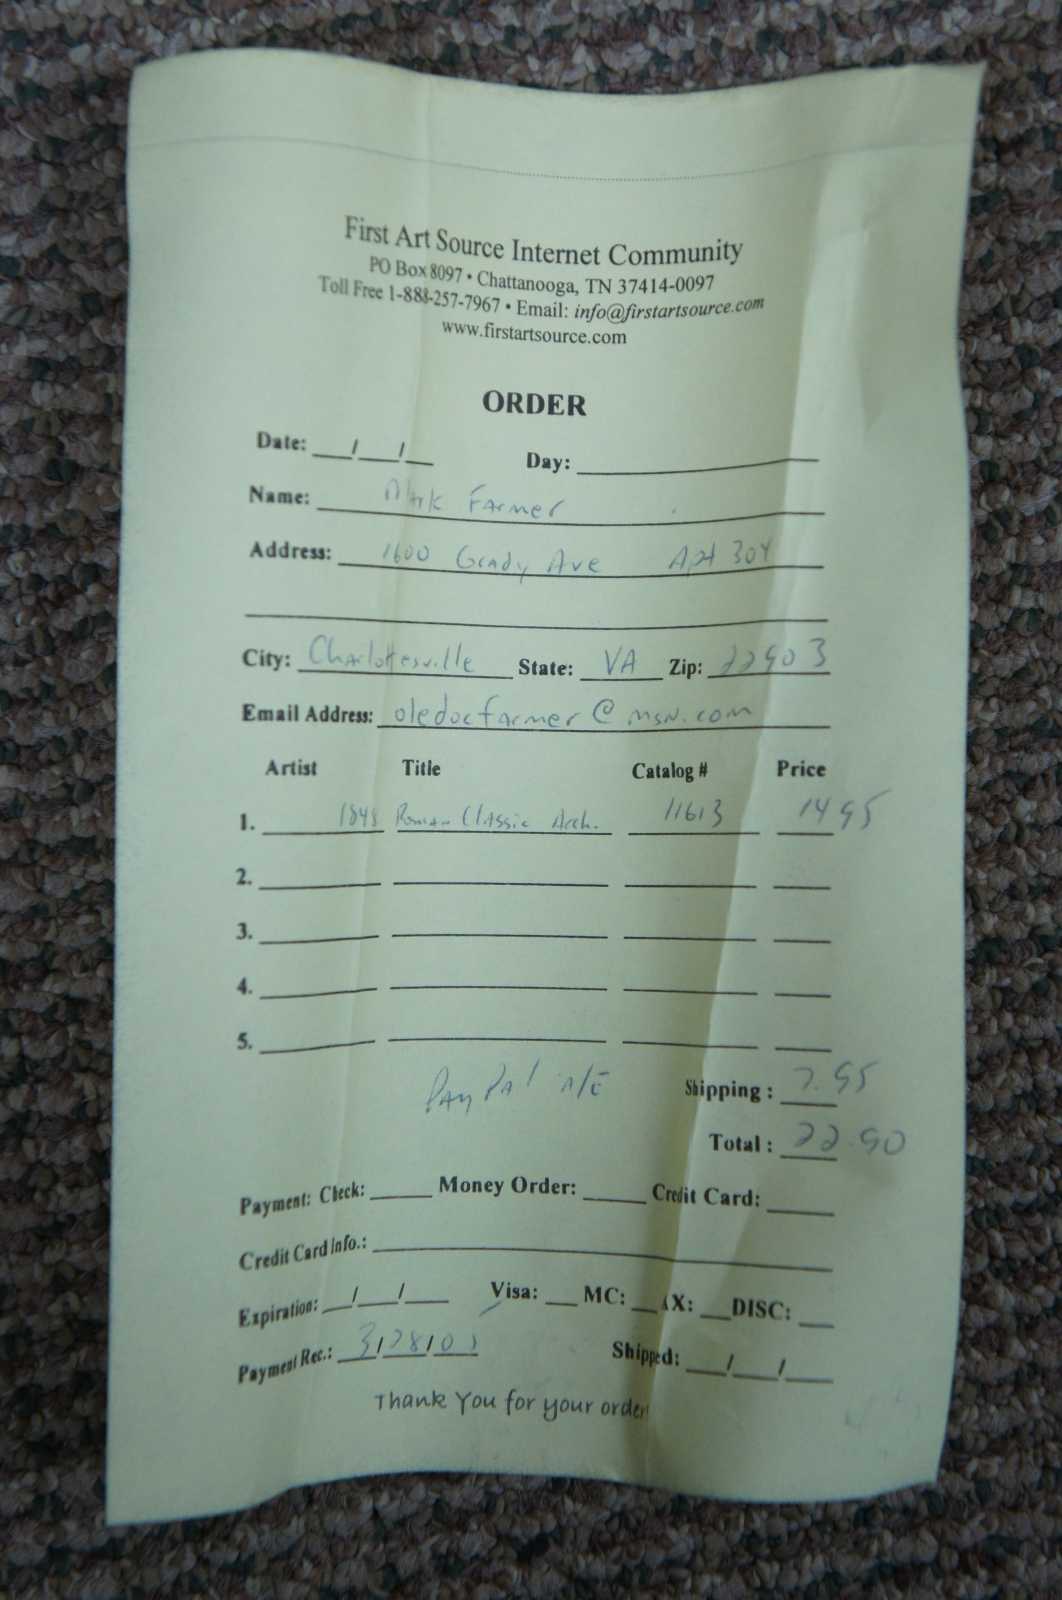 First Art Source Internet Community
PO Box 8097 • Chattanooga, TN 37414-0097
Toll Free 1-888-257-7967 • Email: info@firstartsource.com
www.firstartsource.com
ORDER
Date: ___/___/___ Day:
Name: Mark Farmer
Address: 1600 Grady Ave Apt 304
City: Charlottesville State: VA Zip: 22903
Email Address: oledocfarmer@msn.com
Artist Title Catalog # Price
1. 1848 Roman Classic Arch. 11613 14 95
2.
3.
4.
5.
PayPal Shipping: 7.95
Total: 22.90
Payment: Check: Money Order: Credit Card:
Credit Card Info.:
Expiration: ___/___/___ Visa: ___ MC: ___ AX: ___ DISC: ___
Payment Rec.: 3/28/05 Shipped: ___/___/___
Thank You for your order